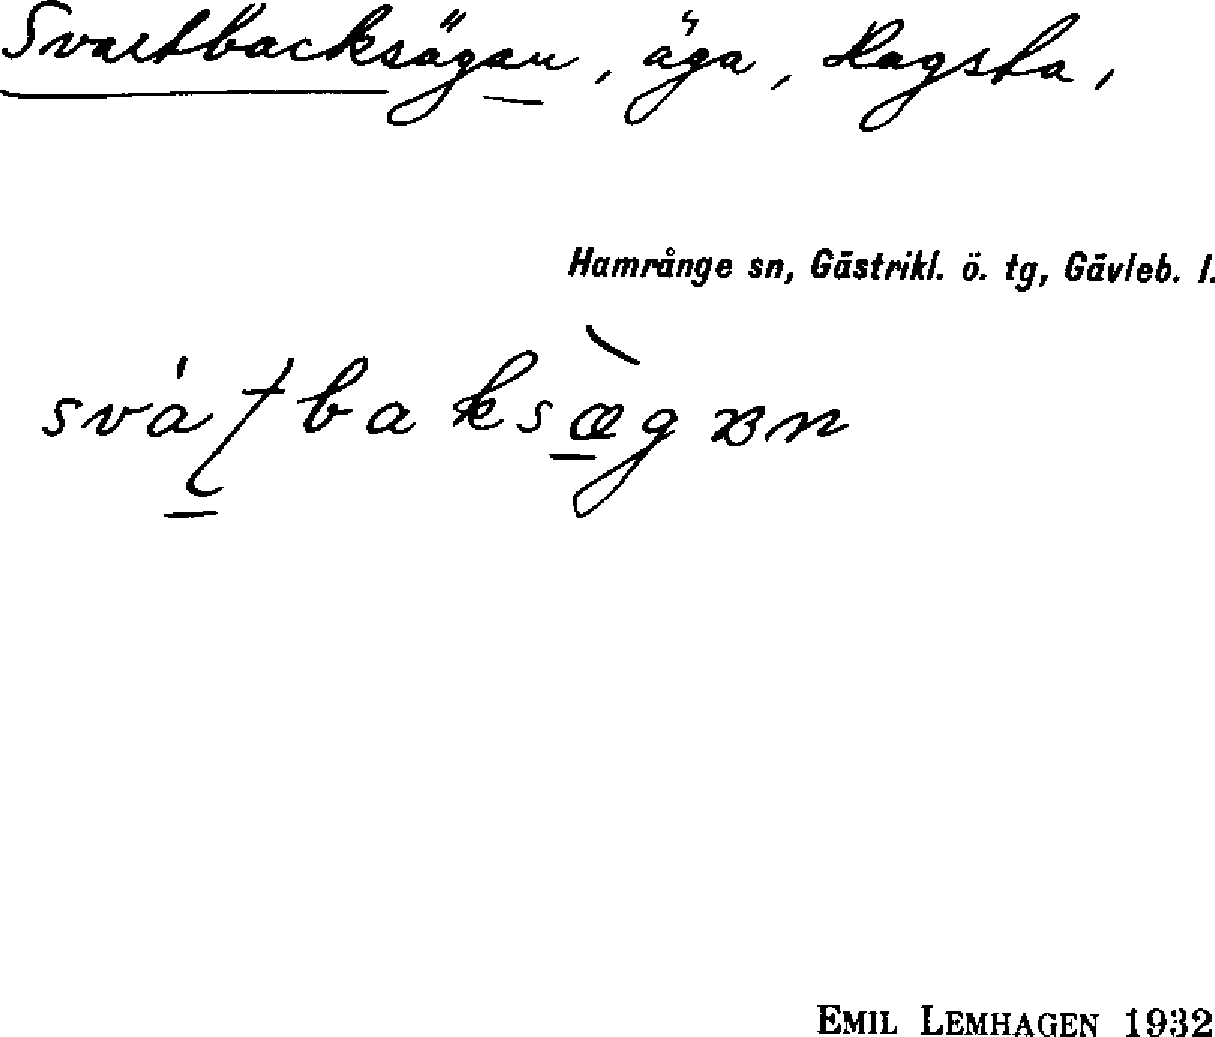 Svartbacksägan, äga, Hagsta,
Hamrånge sn, Gästrikl. ö. tg, Gävleb. l.
EMIL LEMHAGEN 1932